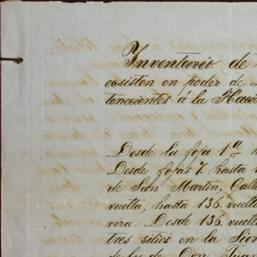 Inventario de
ecsisten en poder de
tenecientes á la Haci
Desde la foja 1ª
Desde fojas 7. hasta
de San Martin, Call
vuelta, hasta 136. vuelt
vera. Desde 136. vuelt
tres sitios en la Sier
de Don Juan